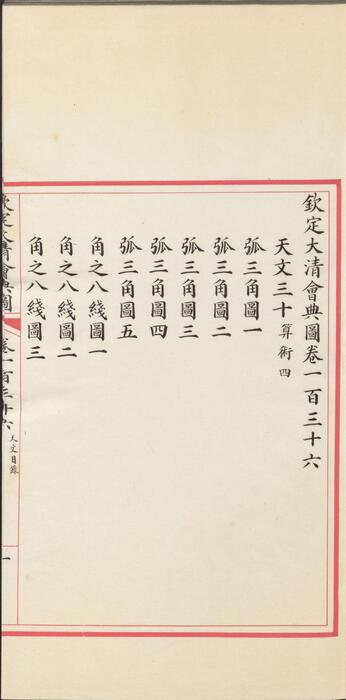 欽定大清會典圖卷一百三十六
天文三十算術四
弧三角圖一
弧三角圖二
弧三角圖三
弧三角圖四
弧三角圖五
角之八綫圖一
角之八綫圖二
角之八綫圖三
欽定大清會典圖
卷一百三十六
天文目錄
一